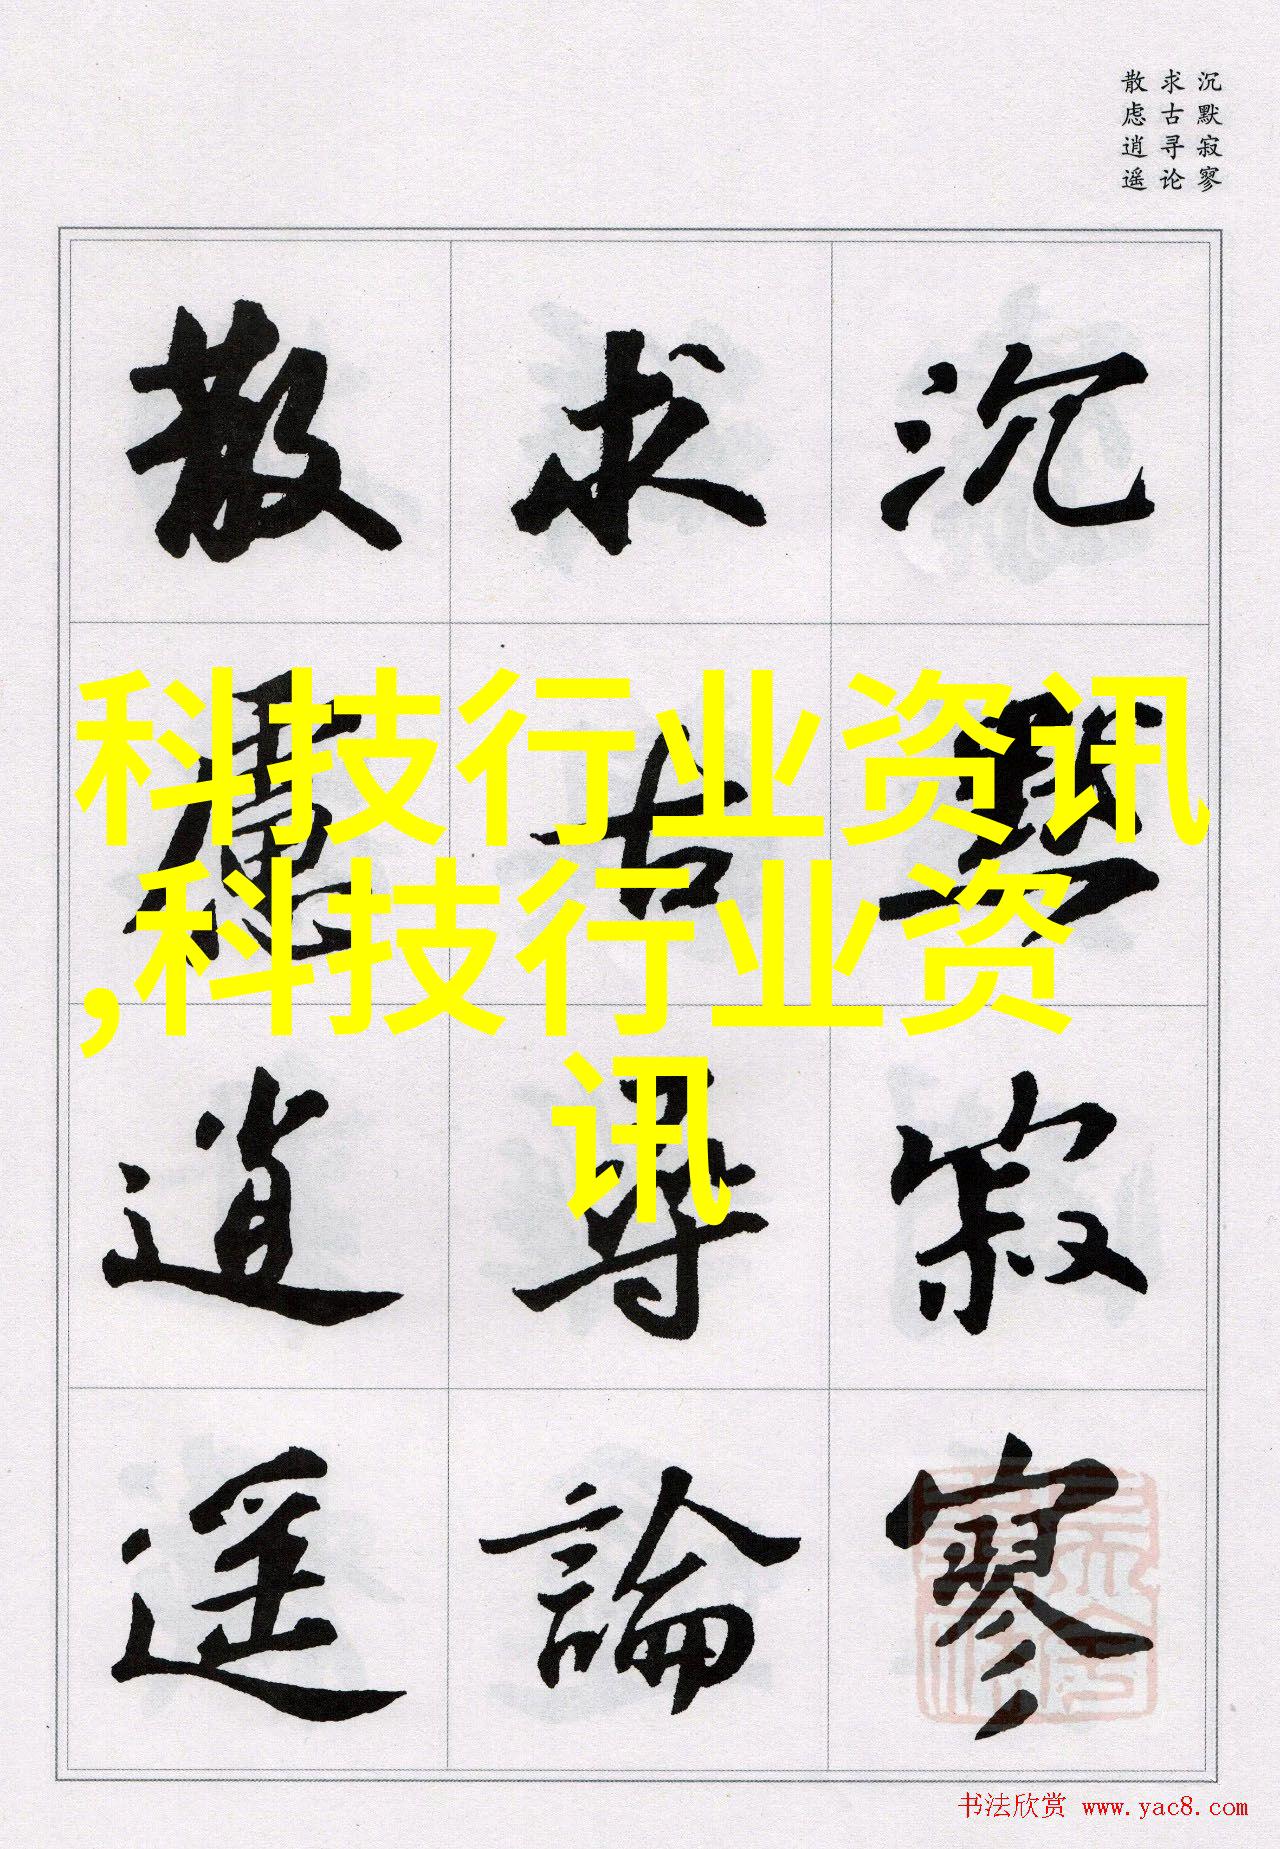 沉默寂寥
求古寻论
散虑逍遥
沉默寂寥
求古尋論
散慮逍遥
科技行业资讯
,科技行业资
讯
书法欣赏 www.yac8.com